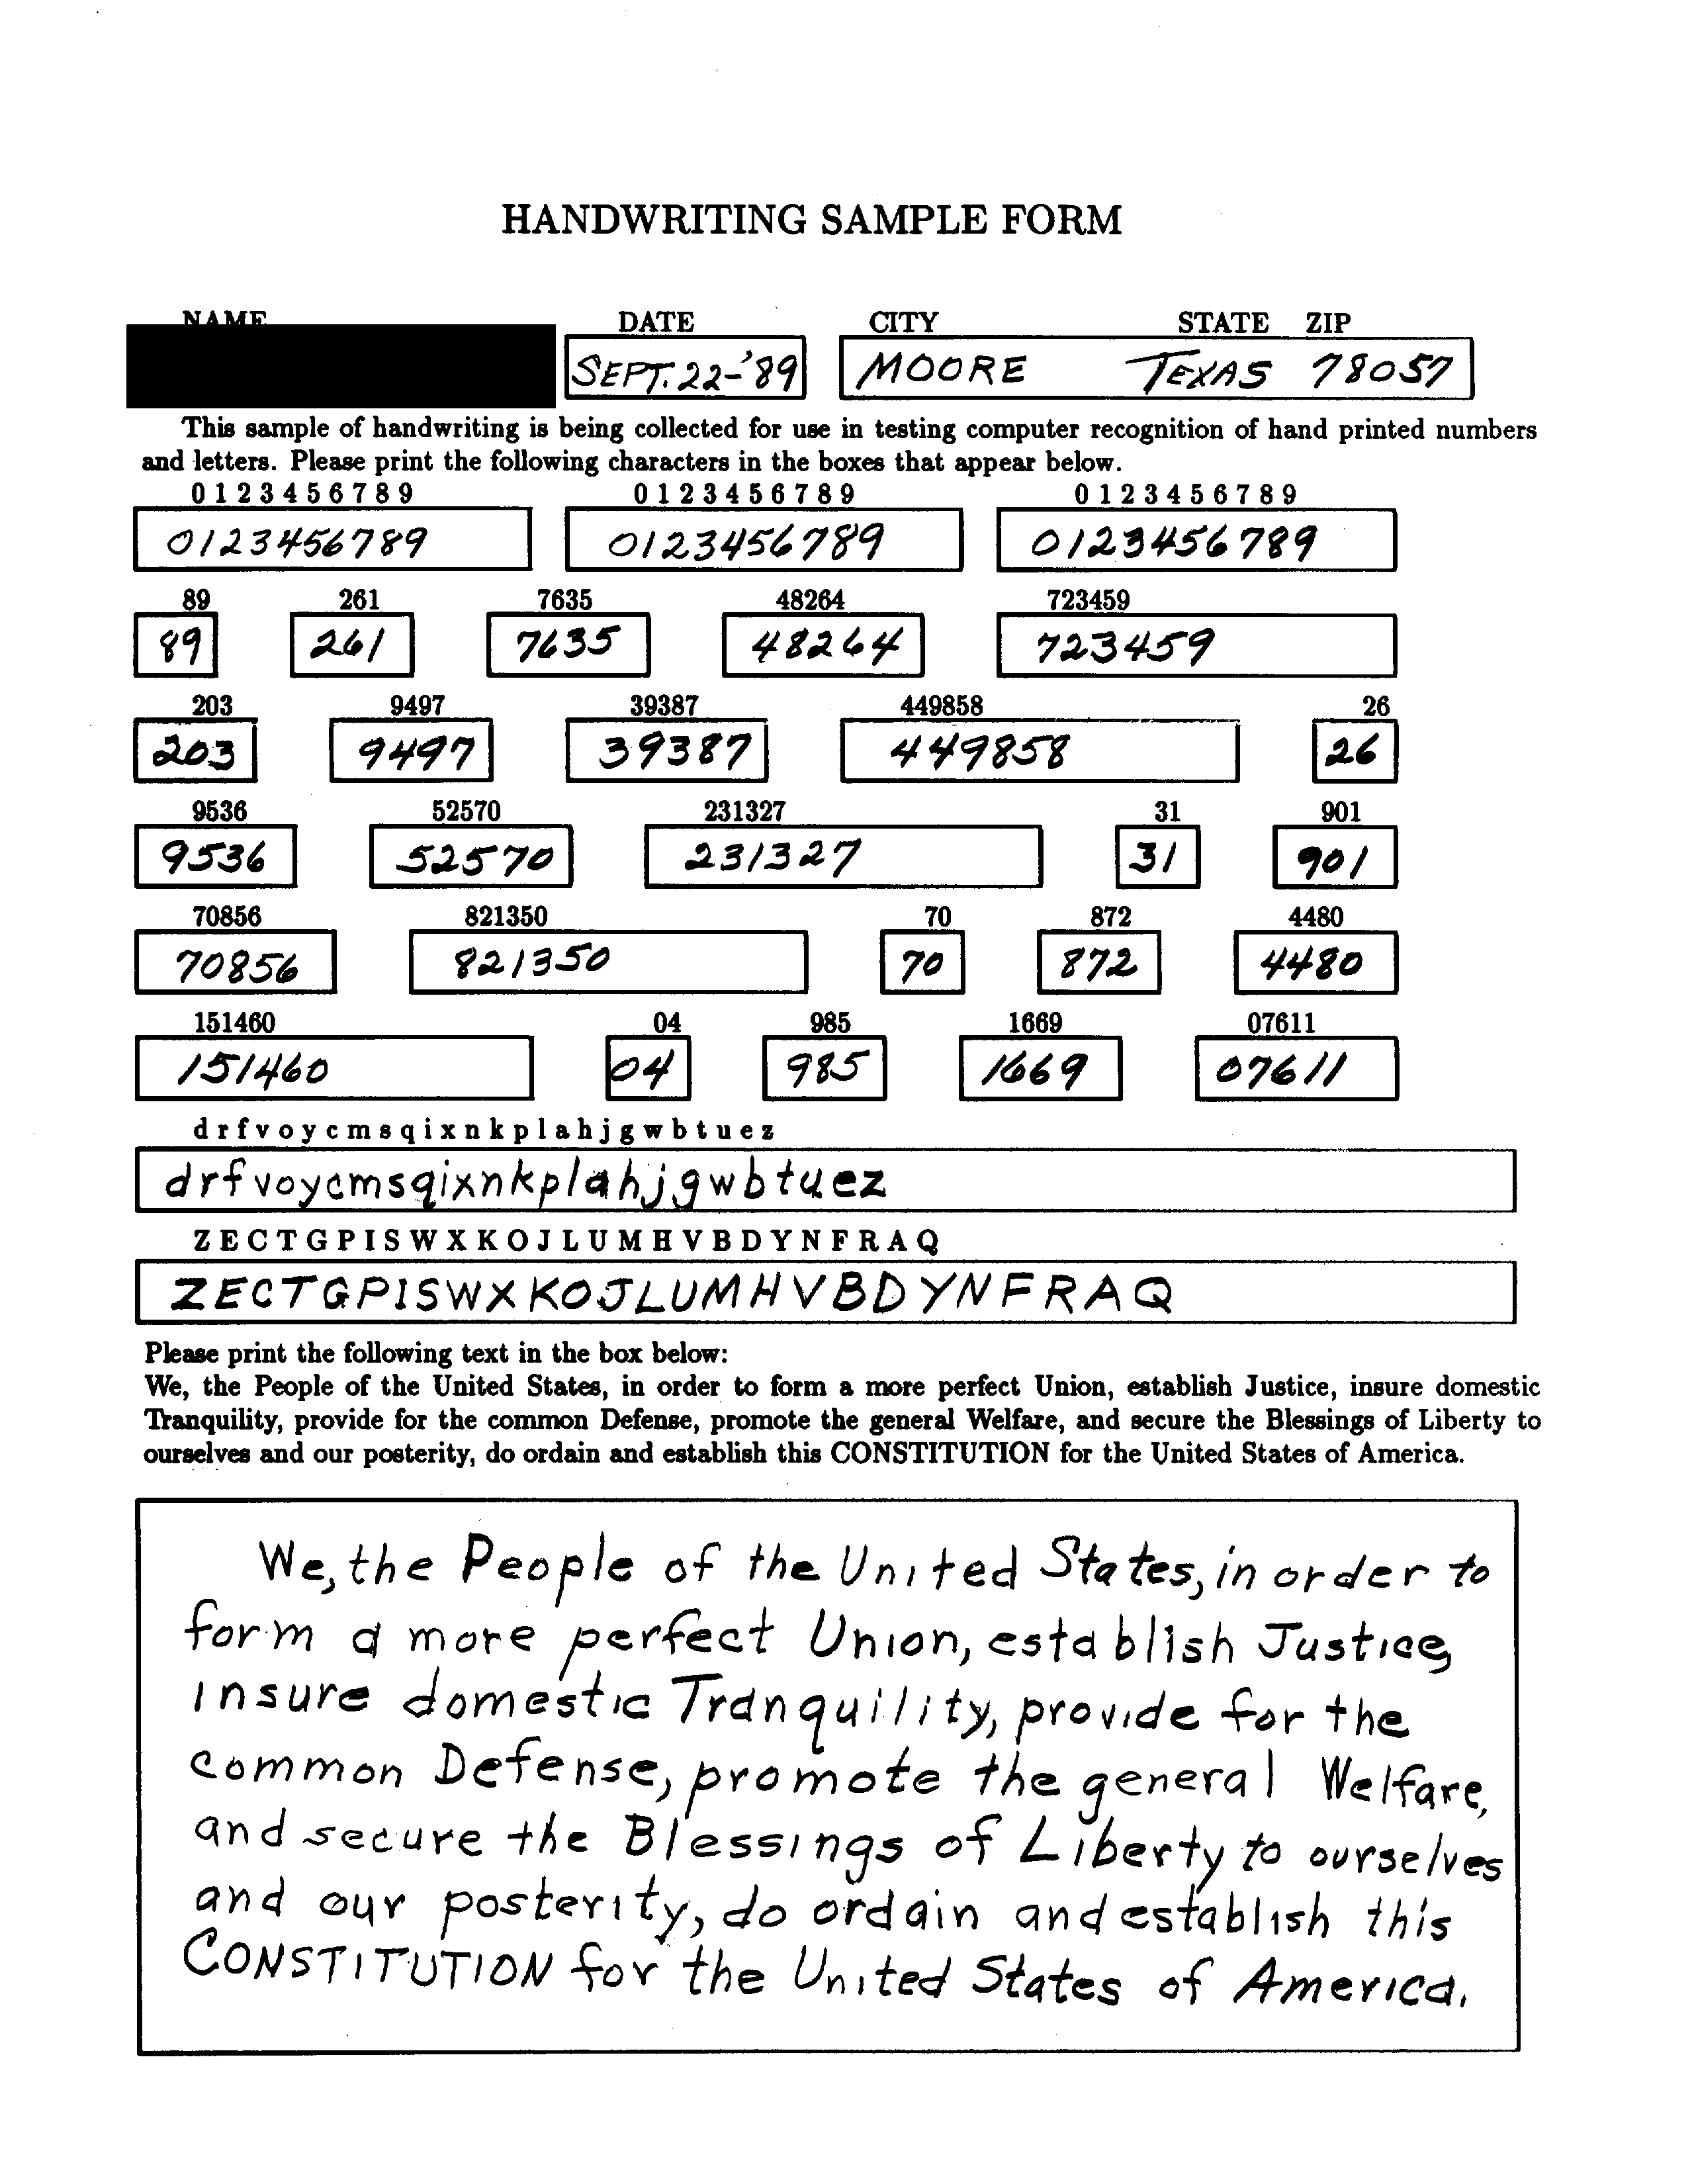 HANDWRITING SAMPLE FORM
NAME DATE CITY STATE ZIP
SEPT. 22-'89 MOORE TEXAS 78057
This sample of handwriting is being collected for use in testing computer recognition of hand printed numbers
and letters. Please print the following characters in the boxes that appear below.
0 1 2 3 4 5 6 7 8 9 0 1 2 3 4 5 6 7 8 9 0 1 2 3 4 5 6 7 8 9
0123456789 0123456789 0123456789
89 261 7635 48264 723459
89 261 7635 48264 723459
203 9497 39387 449858 26
203 9497 39387 449858 26
9536 52570 231327 31 901
9536 52570 231327 31 901
70856 821350 70 872 4480
70856 821350 70 872 4480
151460 04 985 1669 07611
151460 04 985 1669 07611
d r f v o y c m s q i x n k p l a h j g w b t u e z
drfvoycmsqixnkplahjgwbtuez
Z E C T G P I S W X K O J L U M H V B D Y N F R A Q
ZECTGPISWXKOJLUMHVBDYNFRAQ
Please print the following text in the box below:
We, the People of the United States, in order to form a more perfect Union, establish Justice, insure domestic
Tranquility, provide for the common Defense, promote the general Welfare, and secure the Blessings of Liberty to
ourselves and our posterity, do ordain and establish this CONSTITUTION for the United States of America.
We, the People of the United States, in order to
form a more perfect Union, establish Justice,
insure domestic Tranquility, provide for the
common Defense, promote the general Welfare,
and secure the Blessings of Liberty to ourselves
and our posterity, do ordain and establish this
CONSTITUTION for the United States of America.